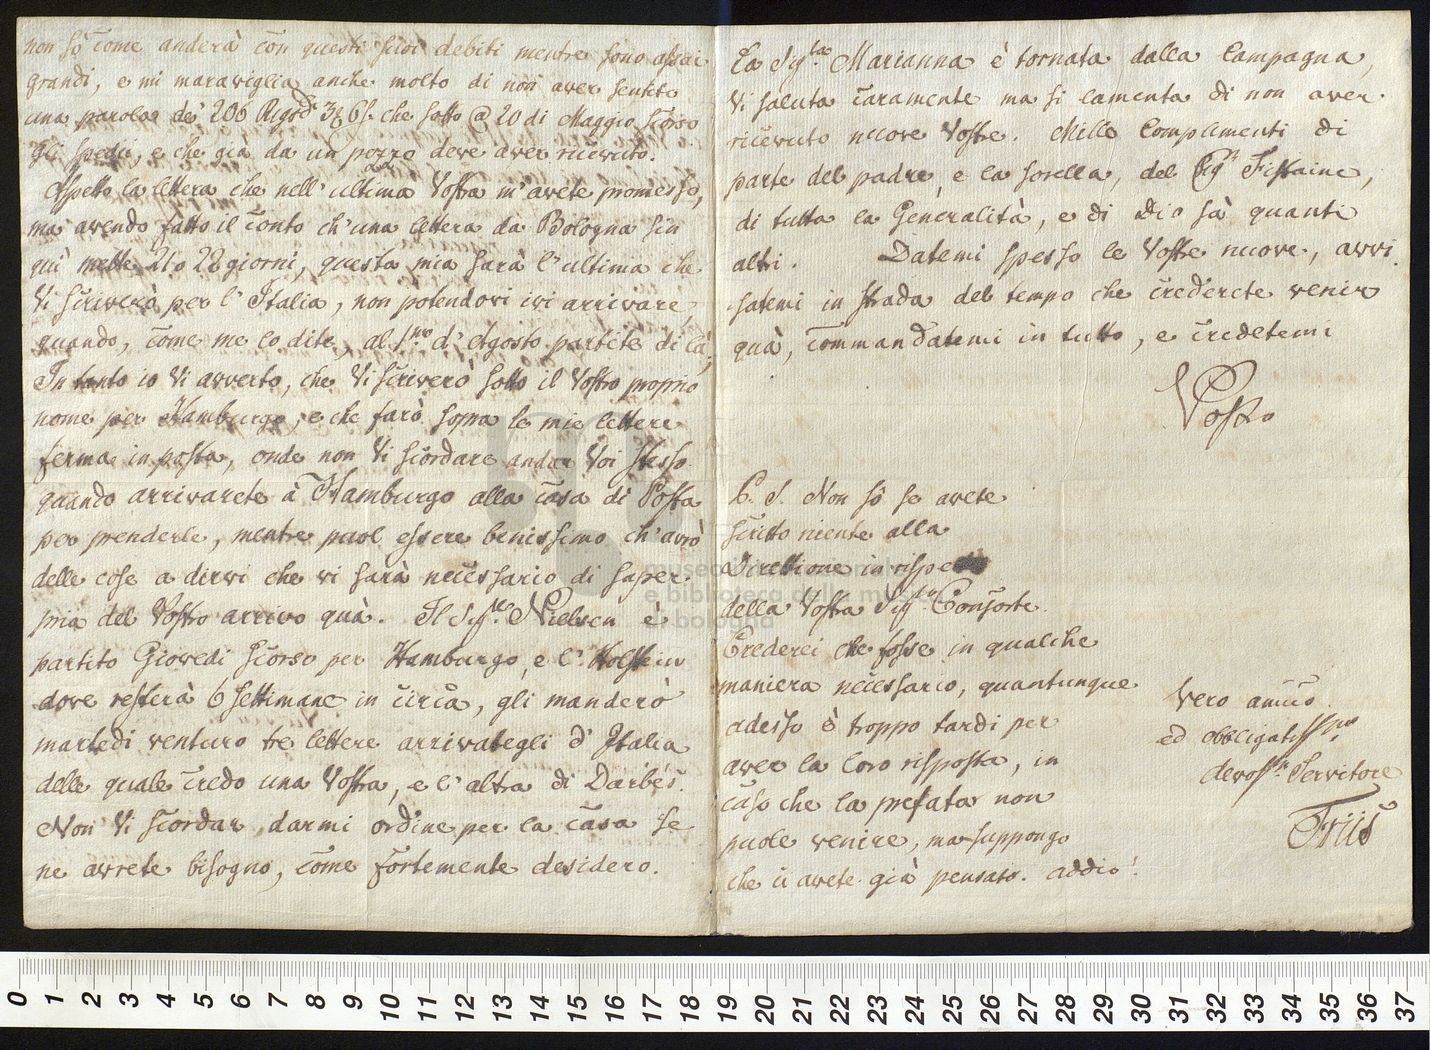 non sò come anderà con questi suoi debiti mentre sono assai
grandi, e mi maraviglia anche molto di non aver sentito
una parola de' 206 che sotto @ 20 di Maggio scorso
gli spedii, e che già da un pozzo deve aver ricevuto.
Aspetto la lettera che nell' ultima Vostra m' avete promesso,
ma avendo fatto il conto ch' una lettera da Bologna sin
quì mette 21 o 22 giorni, questa mia sarà l' ultima che
Vi scriverò per l' Italia, non potendovi ivi arrivare,
quando, come me lo dite, al 1.mo d' Agosto partite di là;
In tanto io Vi averto, che Vi scriverò sotto il Vostro proprio
nome per Hamburgo, e che farò sopra le mie lettere
ferma in posta, onde non Vi scordare andar Voi stesso
quando arrivarete à Hamburgo alla casa di Posta
per prenderle, mentre puol essere benissimo ch' avrò
delle cose a dirvi che vi sarà necessario di saper
pria del Vostro arrivo quà. Il Sigr. Nielsen è
partito Giovedi scorso per Hamburgo, e l' Holstein
dove resterà 6 settimane in circa, gli manderò
martedi venturo tre lettere arrivategli d' Italia
delle quale credo una Vostra, e l' altra di Darbés.
Non Vi scordar, darmi ordine per la casa se
ne avrete bisogno, come fortemente desidero.
La Sig.ra Marianna è tornata dalla Campagna,
Vi saluta caramente ma si lamenta di non aver
ricevuto nuove Vostre. Mille Complimenti di
parte del padre, e la sorella, del Fistaine,
di tutta la Generalità, e di Dio sà quanti
altri. Datemi spesso le Vostre nuove, avvi
satemi in strada del tempo che crederete venir
quà, commandatemi in tutto, e credetemi
Vostro
P. S. Non sò se avete
scritto niente alla
Direttione in rispe
della Vostra Sig.ra Consorte.
Crederei che fosse in qualche
maniera necessario, quantunque
adesso è troppo tardi per
aver la loro risposta, in
caso che la prefata non
puole venire, ma suppongo
che ci avete già pensato. addio!
vero amico
ed obbligatiss.mo
devoss. Servitore
Friis
museo internazionale
e biblioteca della musica
di bologna
0 1 2 3 4 5 6 7 8 9 10 11 12 13 14 15 16 17 18 19 20 21 22 23 24 25 26 27 28 29 30 31 32 33 34 35 36 37